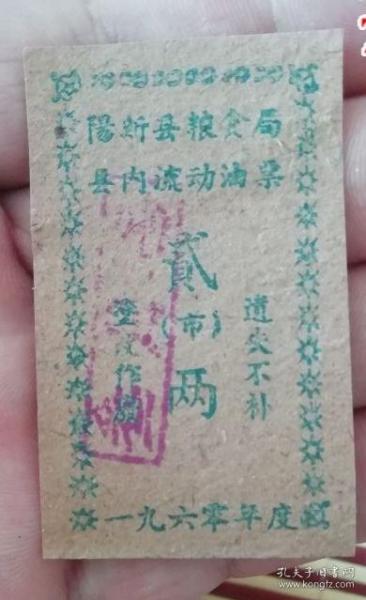 陽新县粮食局
县内流动油票
貳(市)两
遗失不补
塗改作废
一九六零年度
孔夫子旧书网